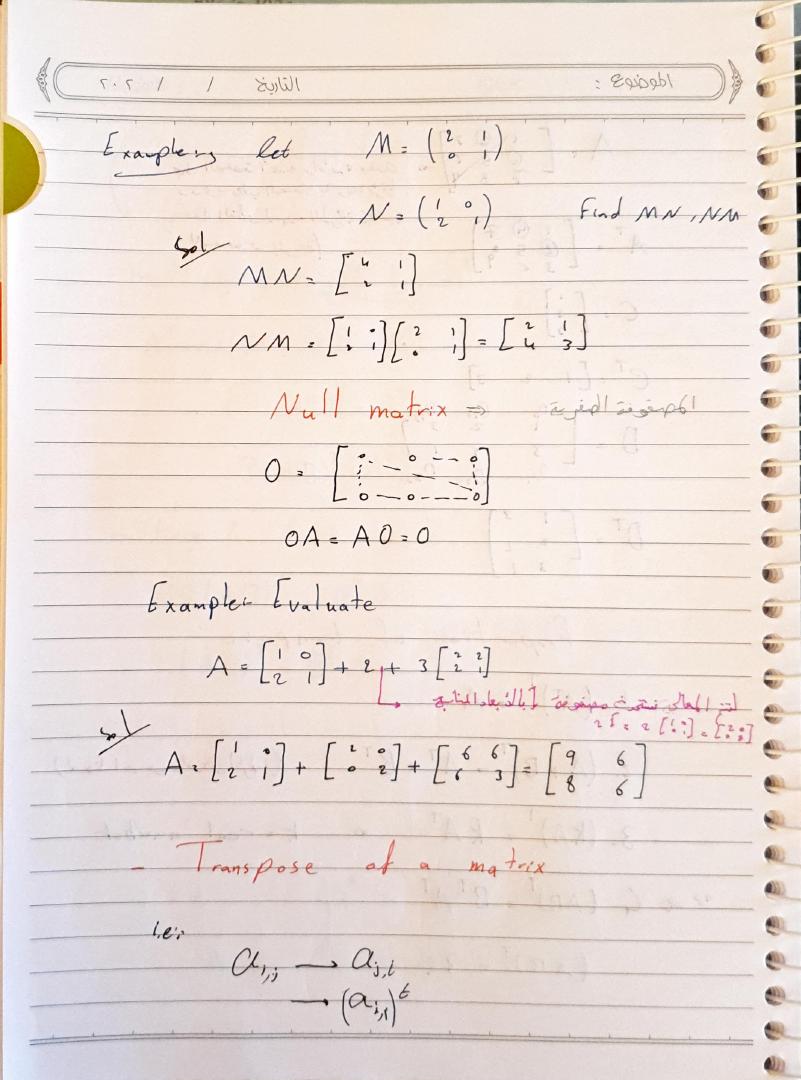 الموضوع : التاريخ / / ٢٠٢
Example:- let M = (2 1
0 1)
N = (1 0
2 1) Find MN , NM
Sol
MN = [4 1
2 1]
NM = [1 0
2 1] [2 1
0 1] = [2 1
4 3]
Null matrix ⇒ المصفوفة الصفرية
0 = [0 0 -- 0
0 -- 0 --- 0]
0A = A0 = 0
Example:- Evaluate
A = [1 0
2 1] + 2 + 3 [2 2
2 1]
مصفوفة I
2I = 2 [1 0
0 1] = [2 0
0 2]
Sol
A = [1 0
2 1] + [2 0
0 2] + [6 6
6 3] = [9 6
8 6]
- Transpose of a matrix
i.e:
a i,j → a j,i
→ (a i,j)^t